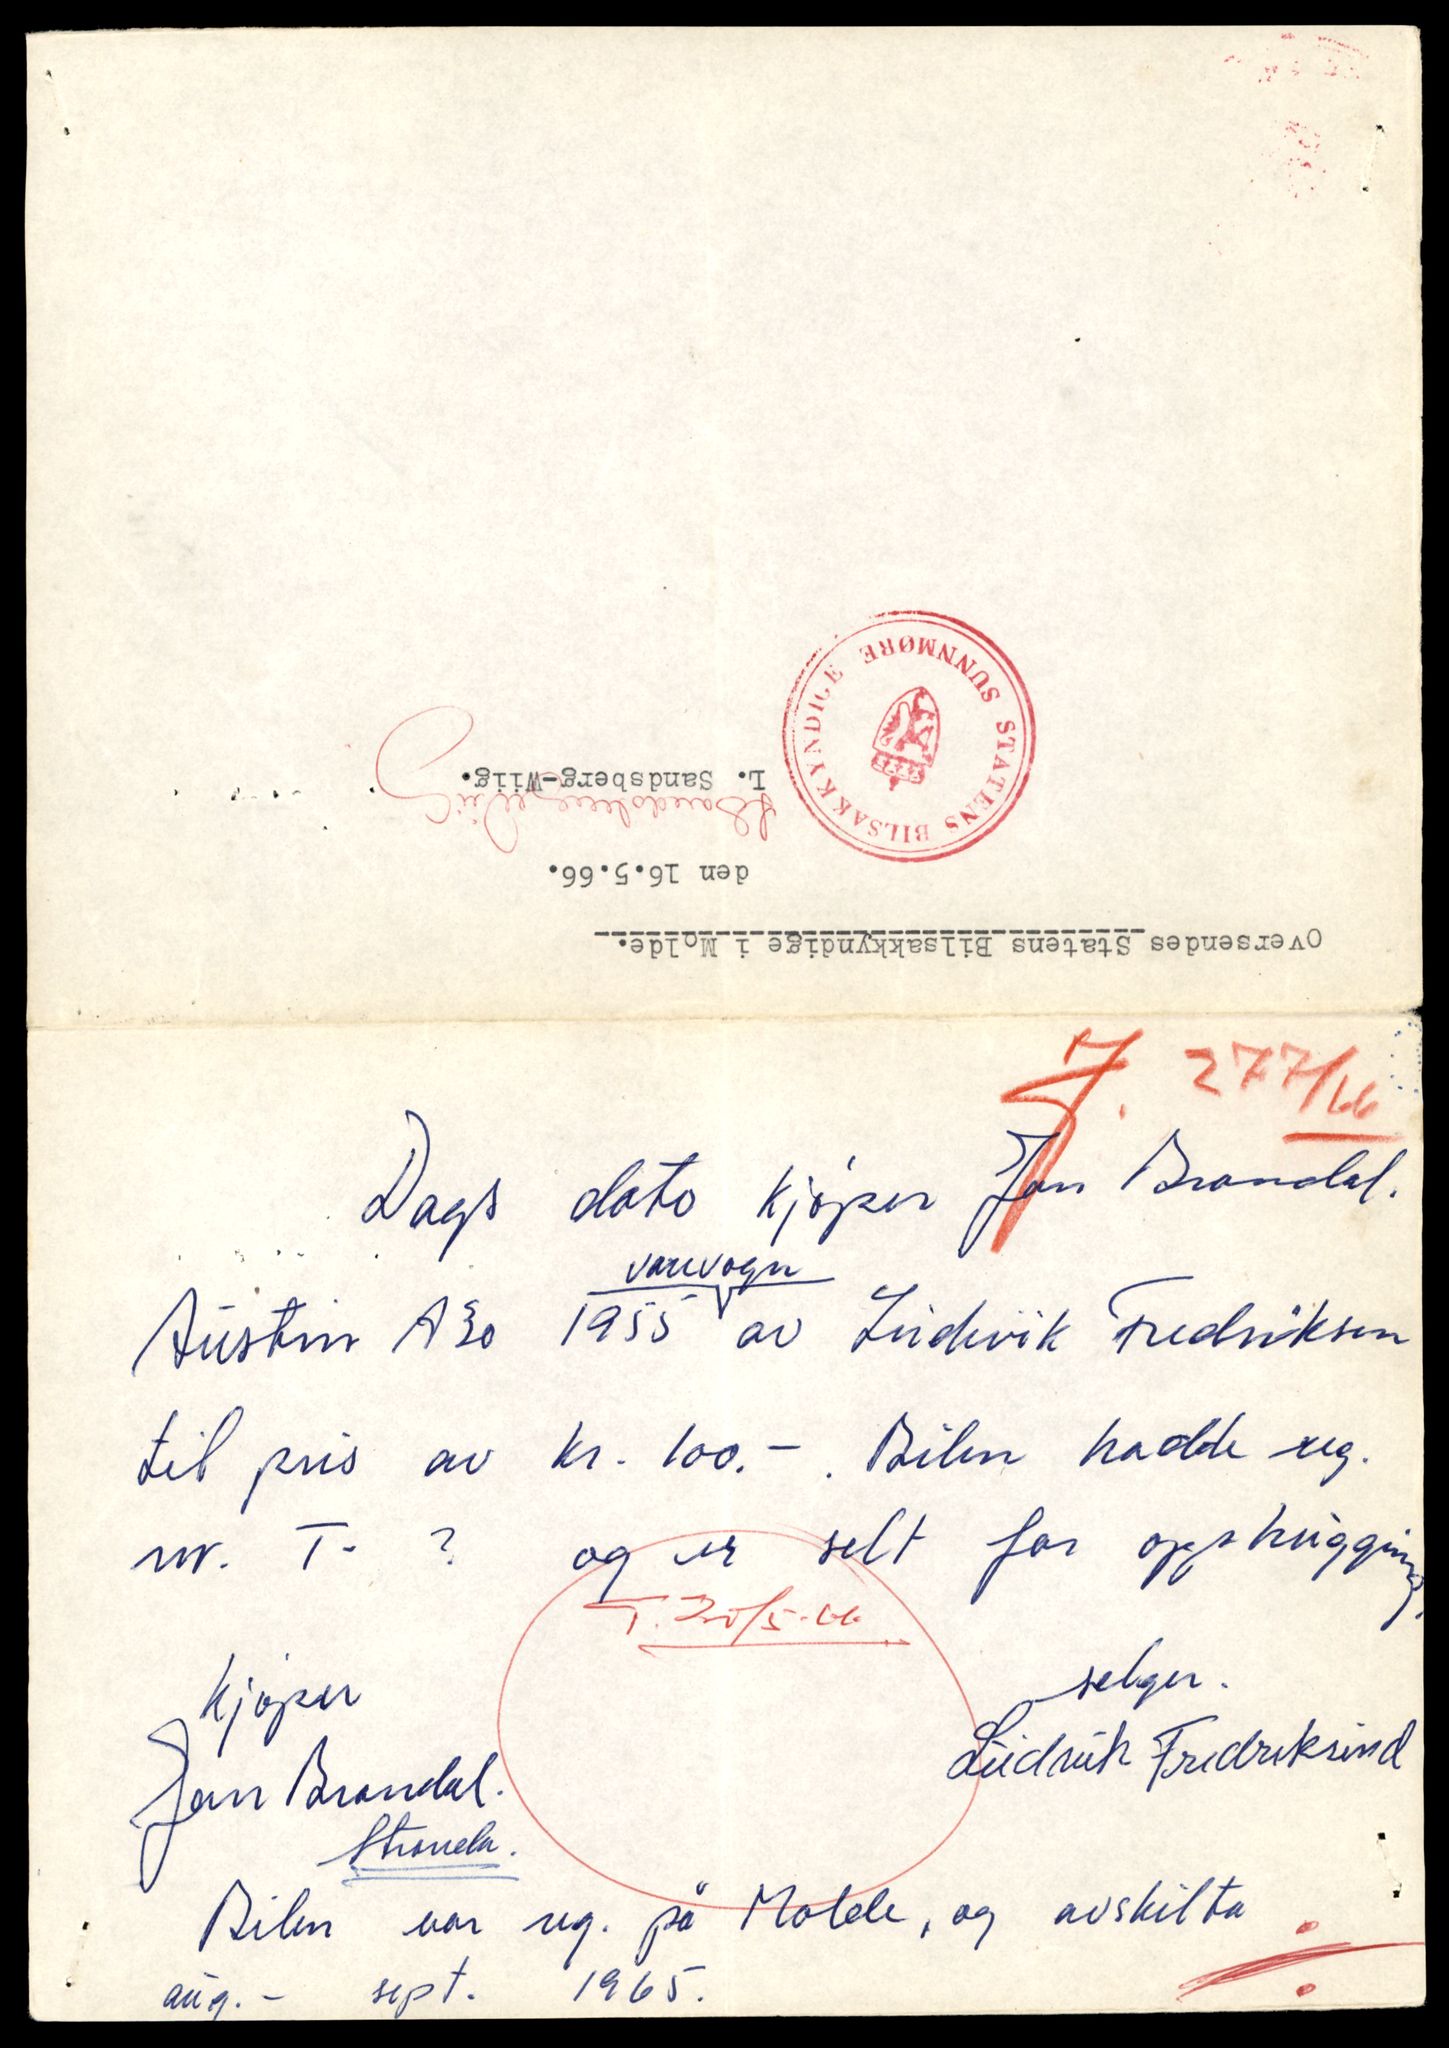 J. 277/66
Dags dato kjøper Jan Brandal.
varevogn
Austin A30 1955 av Ludvik Fredriksen
til pris av kr. 100.-. Bilen hadde reg.
nr. T- ? og er selt for opphugging.
T. 20/5-66
kjøper
selger.
Jan Brandal.
Ludvik Fredriksend
Stranda.
Bilen var reg. på Molde, og avskilta
aug.- sept. 1965.
Oversendes Statens Bilsakkyndige i Molde.
den 16.5.66.
L. Sandsberg-Wiig.
STATENS BILSAKKYNDIGE SUNNMØRE